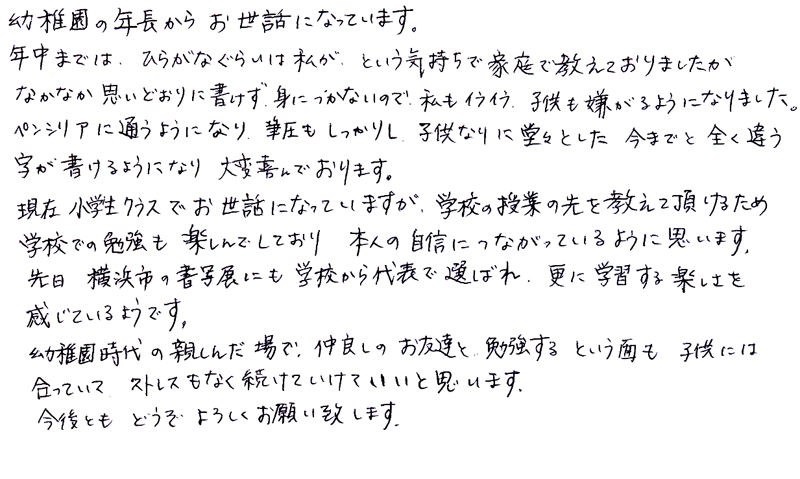 幼稚園の年長から お世話になっています。
年中までは、ひらがなぐらいは私が、という気持ちで家庭で教えておりましたが
なかなか思いどおりに書けず、身につかないので、私もイライラ、子供も嫌がるようになりました。
ペンシリアに通うようになり、筆圧もしっかりし、子供なりに堂々とした 今までと全く違う
字が書けるようになり 大変喜んでおります。
現在 小学生クラスでお世話になっていますが、学校の授業の先を教えて頂けるため
学校での勉強も 楽しんでしており 本人の自信につながっているように思います。
先日 横浜市の書写展にも学校から代表で選ばれ、更に学習する楽しさを
感じているようです。
幼稚園時代の親しんだ場で、仲良しのお友達と、勉強するという面も 子供には
合っていて、ストレスもなく続けていけていいと思います。
今後とも どうぞ よろしくお願い致します。